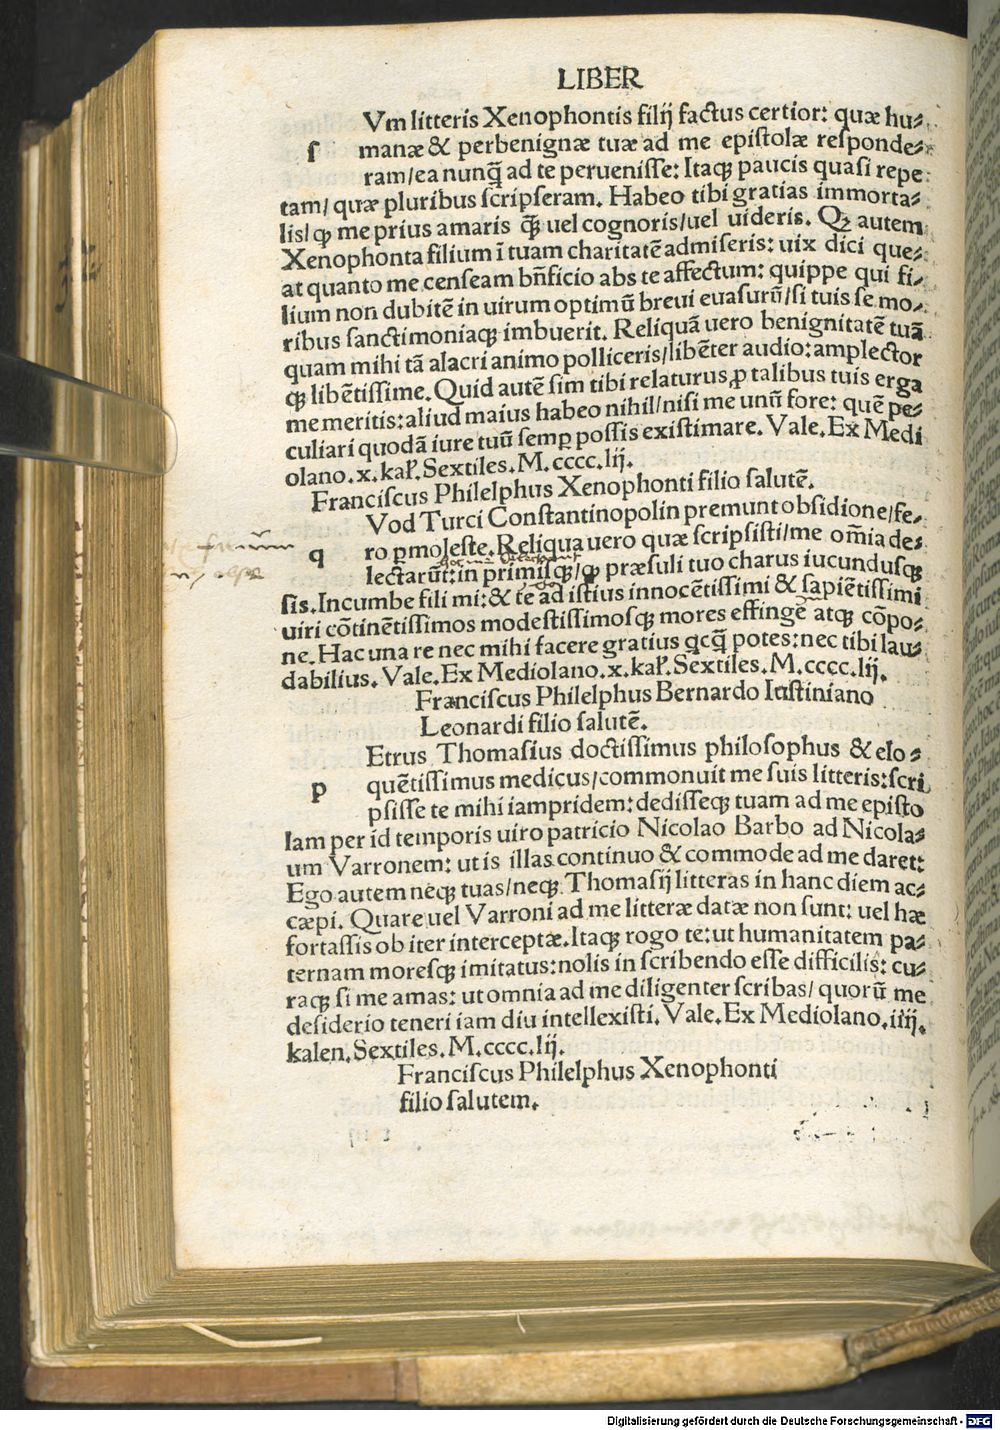 LIBER
Vm litteris Xenophontis filij factus certior: quæ hu⸗
ſ manæ & perbenignæ tuæ ad me epiſtolæ reſponde⸗
ram/ea nunq̄ ad te perueniſſe: Itaqꝫ paucis quaſi repe
tam/ quæ pluribus ſcripſeram. Habeo tibi gratias immorta⸗
lis/ ꝙ me prius amaris q̄ꝫ uel cognoris/uel uideris. Qꝫ autem
Xenophonta filium ī tuam charitatē admiſeris: uix dici que⸗
at quanto me cenſeam bn̄ficio abs te affectum: quippe qui fi⸗
lium non dubitē in uirum optimū breui euaſurū/ſi tuis ſe mo⸗
ribus ſanctimoniaqꝫ imbuerit. Reliquā uero benignitatē tuā
quam mihi tā alacri animo polliceris/libēter audio: amplector
qꝫ libētiſſime. Quid autē ſim tibi relaturus ꝓ talibus tuis erga
me meritis: aliud maius habeo nihil/niſi me unū fore: quē pe⸗
culiari quodā iure tuū ſemꝑ poſſis exiſtimare. Vale. Ex Medi
olano. x. kaƚ. Sextiles. M. cccc. lij.
Franciſcus Philelphus Xenophonti filio ſalutē.
Vod Turci Conſtantinopolin premunt obſidione/fe⸗
q ro ꝑmoleſte. Reliqua uero quæ ſcripſiſti/me om̄ia de⸗
lectarūt: in primiſqꝫ/ꝙ præſuli tuo charus iucunduſqꝫ
ſis. Incumbe fili mi: & te ad iſtius innocētiſſimi & ſapiētiſſimi
uiri cōtinētiſſimos modeſtiſſimoſqꝫ mores effingē atqꝫ cōpo⸗
ne. Hac una re nec mihi facere gratius qcq̄ potes: nec tibi lau⸗
dabilius. Vale. Ex Mediolano. x. kaƚ. Sextiles. M. cccc. lij.
Franciſcus Philelphus Bernardo Iuſtiniano
Leonardi filio ſalutē.
Etrus Thomaſius doctiſſimus philoſophus & elo⸗
p quētiſſimus medicus/commonuit me ſuis litteris: ſcri
pſiſſe te mihi iampridem: dediſſeqꝫ tuam ad me epiſto
lam per id temporis uiro patricio Nicolao Barbo ad Nicola⸗
um Varronem: ut is illas continuo & commode ad me daret:
Ego autem neqꝫ tuas/neqꝫ Thomaſij litteras in hanc diem ac⸗
cæpi. Quare uel Varroni ad me litteræ datæ non ſunt: uel hæ
fortaſſis ob iter interceptæ. Itaqꝫ rogo te: ut humanitatem pa⸗
ternam moreſqꝫ imitatus: nolis in ſcribendo eſſe difficilis: cu⸗
raqꝫ ſi me amas: ut omnia ad me diligenter ſcribas/ quorū me
deſiderio teneri iam diu intellexiſti. Vale. Ex Mediolano. iiij.
kalen. Sextiles. M. cccc. lij.
Franciſcus Philelphus Xenophonti
filio ſalutem.
Digitalisierung gefördert durch die Deutsche Forschungsgemeinschaft - DFG